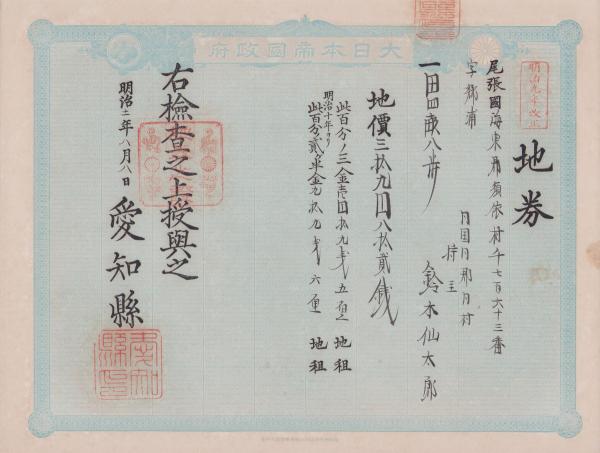 大日本帝國政府
明治九年改正
地券
尾張國海東郡須依村千七百六十三番
字郷浦
同国同郡同村
持主 鈴木仙太郎
一田四畝八歩
地價三拾九円八拾貳銭
此百分ノ三金壱円拾九銭五厘 地租
明治十年ヨリ
此百分貳半金九拾九銭六厘 地租
右検査之上授與之
明治十二年八月八日
愛知縣
愛知縣印